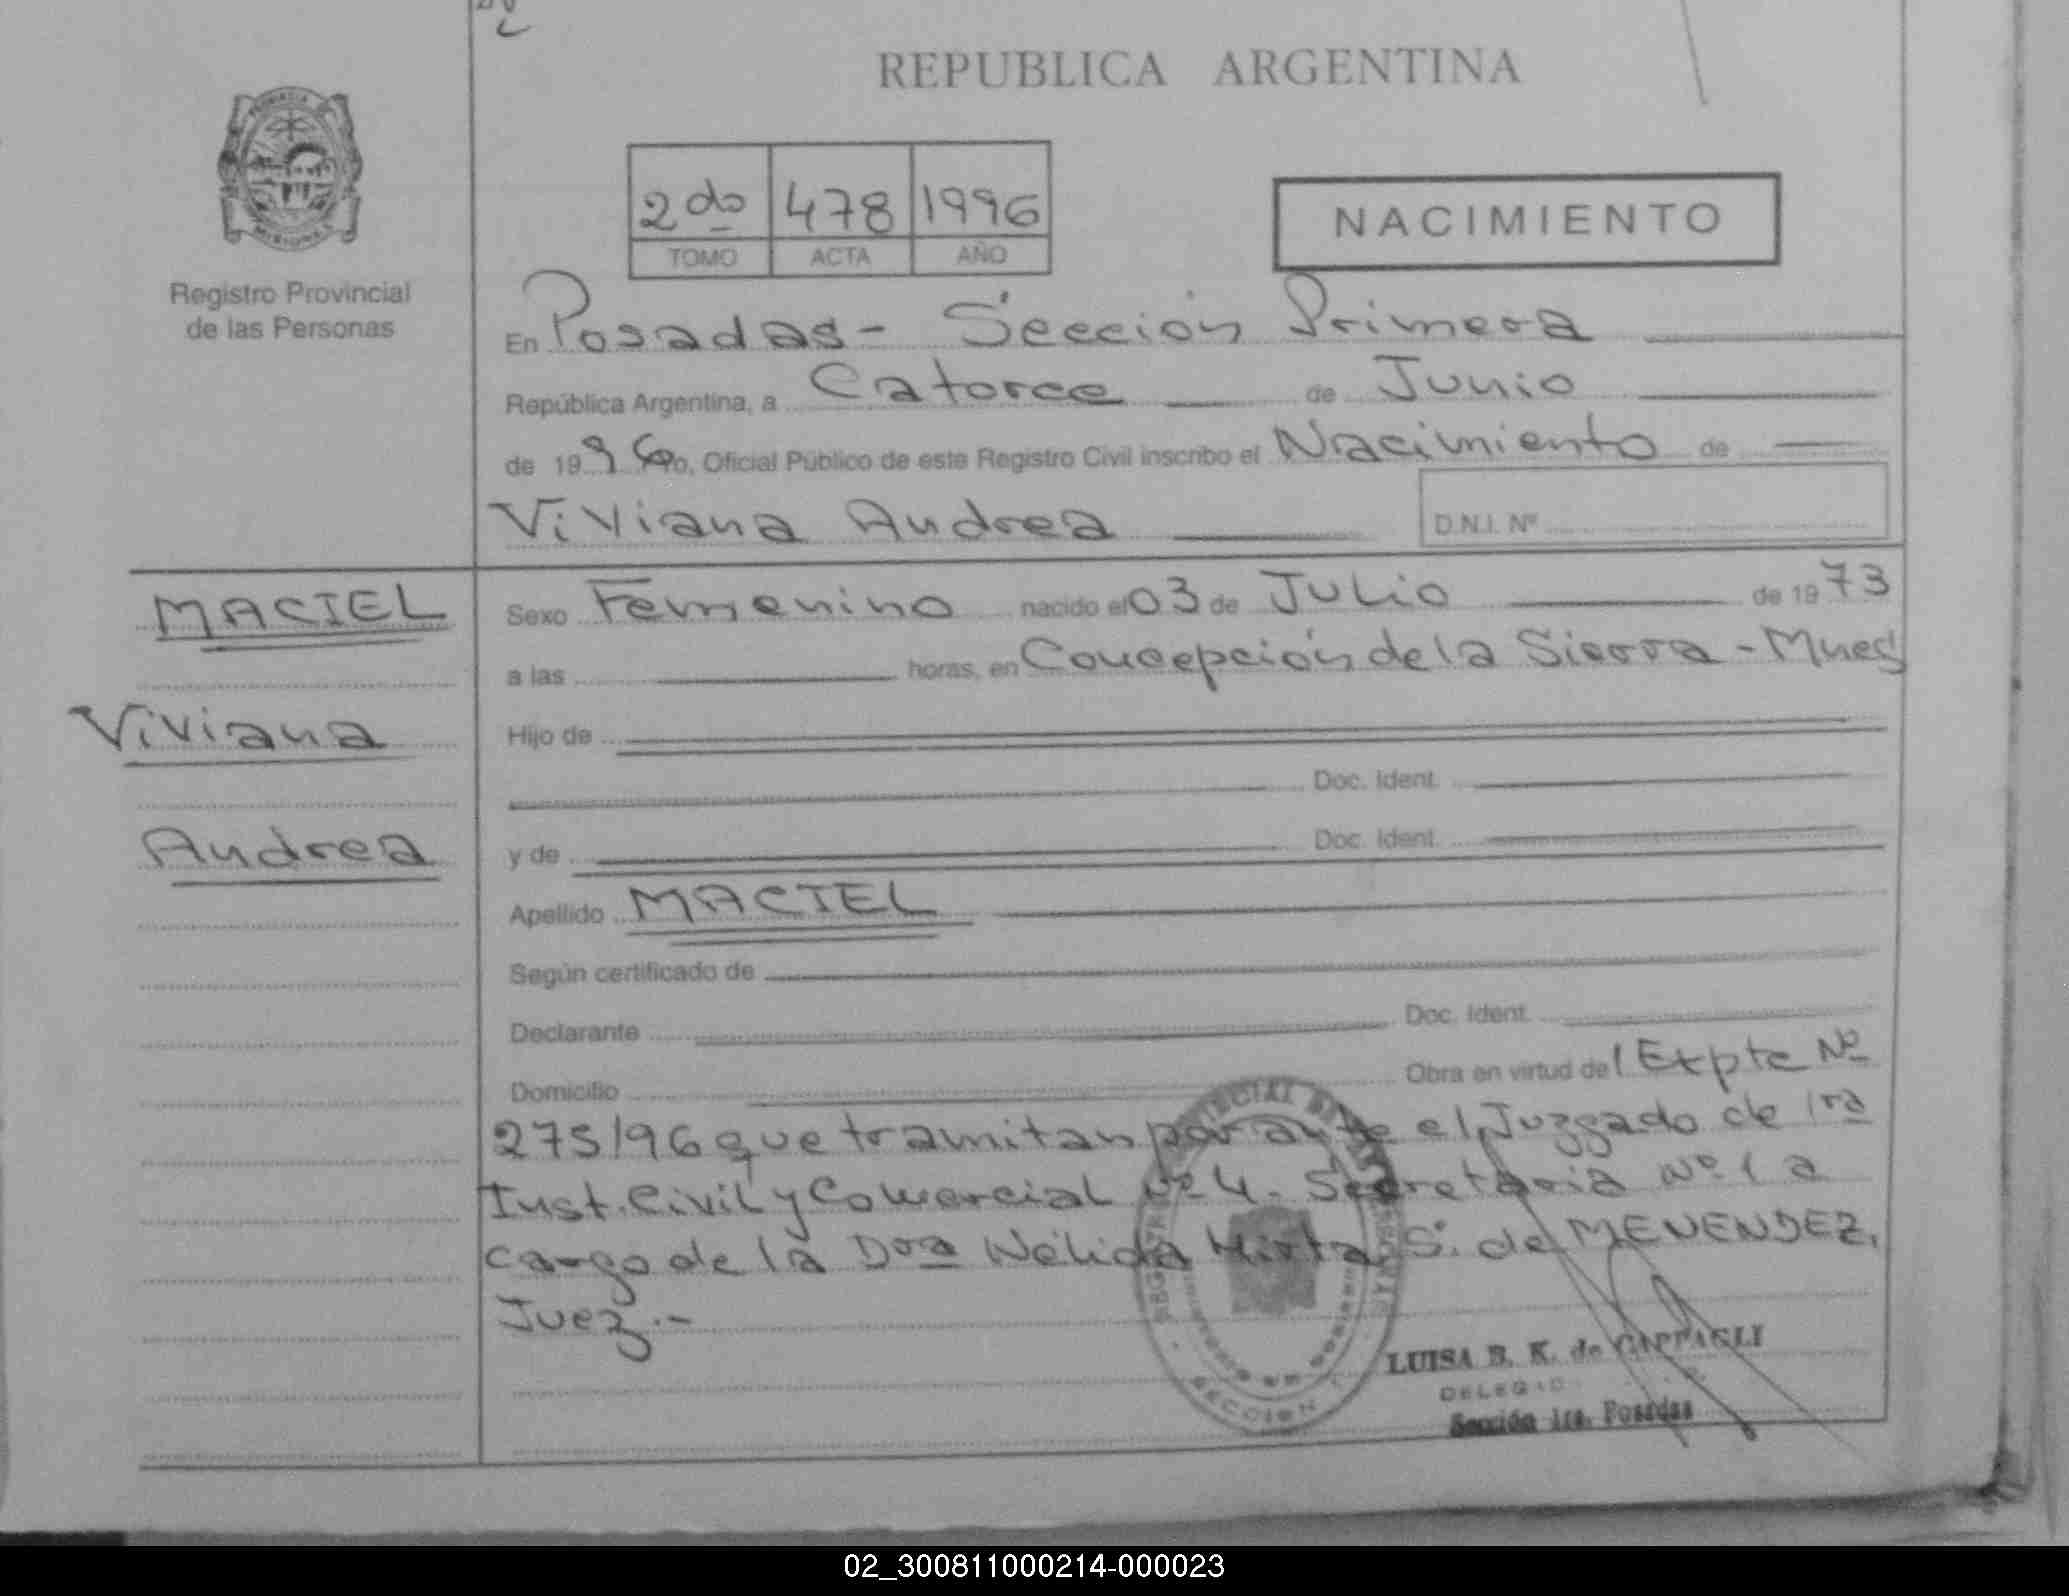 REPUBLICA ARGENTINA
PROVINCIA
MISIONES
Registro Provincial
de las Personas
2do 478 1996
TOMO ACTA AÑO
NACIMIENTO
En Posadas - Sección Primera
República Argentina, a Catorce de Junio
de 1996 yo, Oficial Público de este Registro Civil inscribo el Nacimiento de
Viviana Andrea
D.N.I. Nº
MACIEL
Viviana
Andrea
Sexo Femenino nacido el 03 de Julio de 1973
a las horas, en Concepción de la Sierra - Mnes
Hijo de
Doc. Ident.
y de Doc. Ident.
Apellido MACIEL
Según certificado de
Declarante Doc. Ident.
Domicilio Obra en virtud del Expte Nº
275/96 que tramitan por ante el Juzgado de 1ra
Inst. Civil y Comercial Nº 4. Secretaria Nº 1 a
cargo de la Dra Nélida Mirta S. de MENENDEZ.
Juez.-
SECCION
LUISA B. K. de CAPPAGLI
Sección 1ra. Posadas
02_300811000214-000023